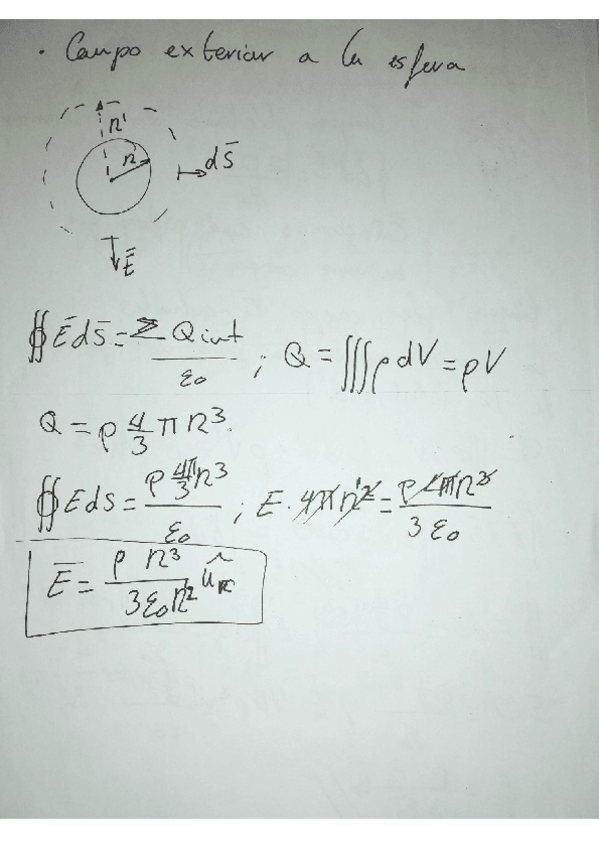 · Campo exterior a la esfera
r'
r
dS̄
Ē
∯ Ē dS̄ = Σ Qint / ε₀ ; Q = ∭ ρ dV = ρV
Q = ρ 4/3 π r³.
∯ E ds = ρ 4π/3 r³ / ε₀ ; E · 4π r'² = ρ 4π r³ / 3 ε₀
Ē = ρ r³ / 3ε₀ r'² û_r